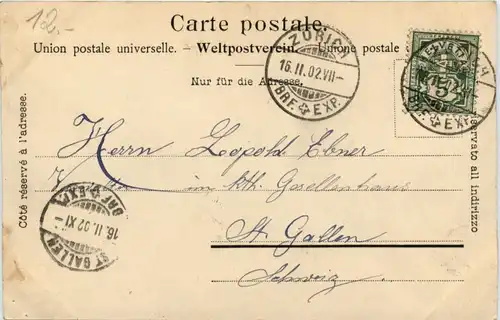 12.-
Carte postale.
Union postale universelle. – Weltpostverein. – Unione postale
Nur für die Adresse.
ZÜRICH
16.II.02.VII–
BRF. EXP.
5
Côté réservé à l'adresse.
servato all indirizzo
Herrn Leopold Ebner
im kth. Gesellenhaus
St. Gallen
Schweiz
ST. GALLEN
16.II.02.XI–
BRF. EXP.